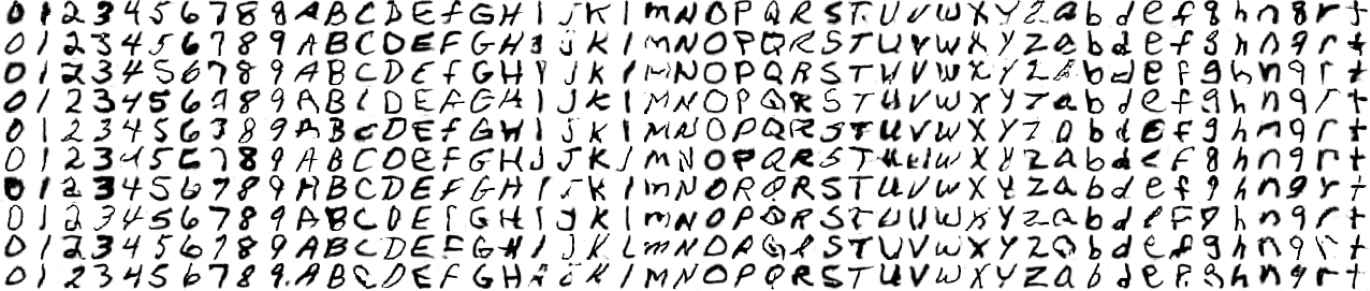 0 1 2 3 4 5 6 7 8 9 A B C D E f G H I J K l m N O P Q R S T U V W X Y Z a b d e f g h n g r t
0 1 2 3 4 5 6 7 8 9 A B C D E F G H I j K l M N O P Q R S T U V W X Y Z a b d e f g h n q r t
0 1 2 3 4 5 6 7 8 9 A B C D E f G H I J K l M N O P Q R S T U V W X Y Z a b d e f g h n q r t
0 1 2 3 4 5 6 7 8 9 A B C D E F G H I J K l M N O P Q R S T U V W X Y Z a b d e f g h n q r t
0 1 2 3 4 5 6 7 8 9 A B C D E f G H I j K l M N O P Q R S T U V W X Y Z a b d E f g h n q r t
0 1 2 3 4 5 6 7 8 9 A B C D E F G H J J K l m N O P Q R S T U V W X Y Z a b d e F g h n q r t
0 1 2 3 4 5 6 7 8 9 A B C D E F G H I J K l m N O P Q R S T U V W X Y Z a b d e f g h n q r t
0 1 2 3 4 5 6 7 8 9 A B C D E F G H I j K l m N O P Q R S T U V W X Y Z a b d e F g h n q r t
0 1 2 3 4 5 6 7 8 9 A B C D E F G H I j K L m N O P Q R S T U V W X Y Z a b d e f g h n q r t
0 1 2 3 4 5 6 7 8 9 A B C D E F G H i J K l M N O P Q R S T U V W X Y Z a b d e f g h n q r t